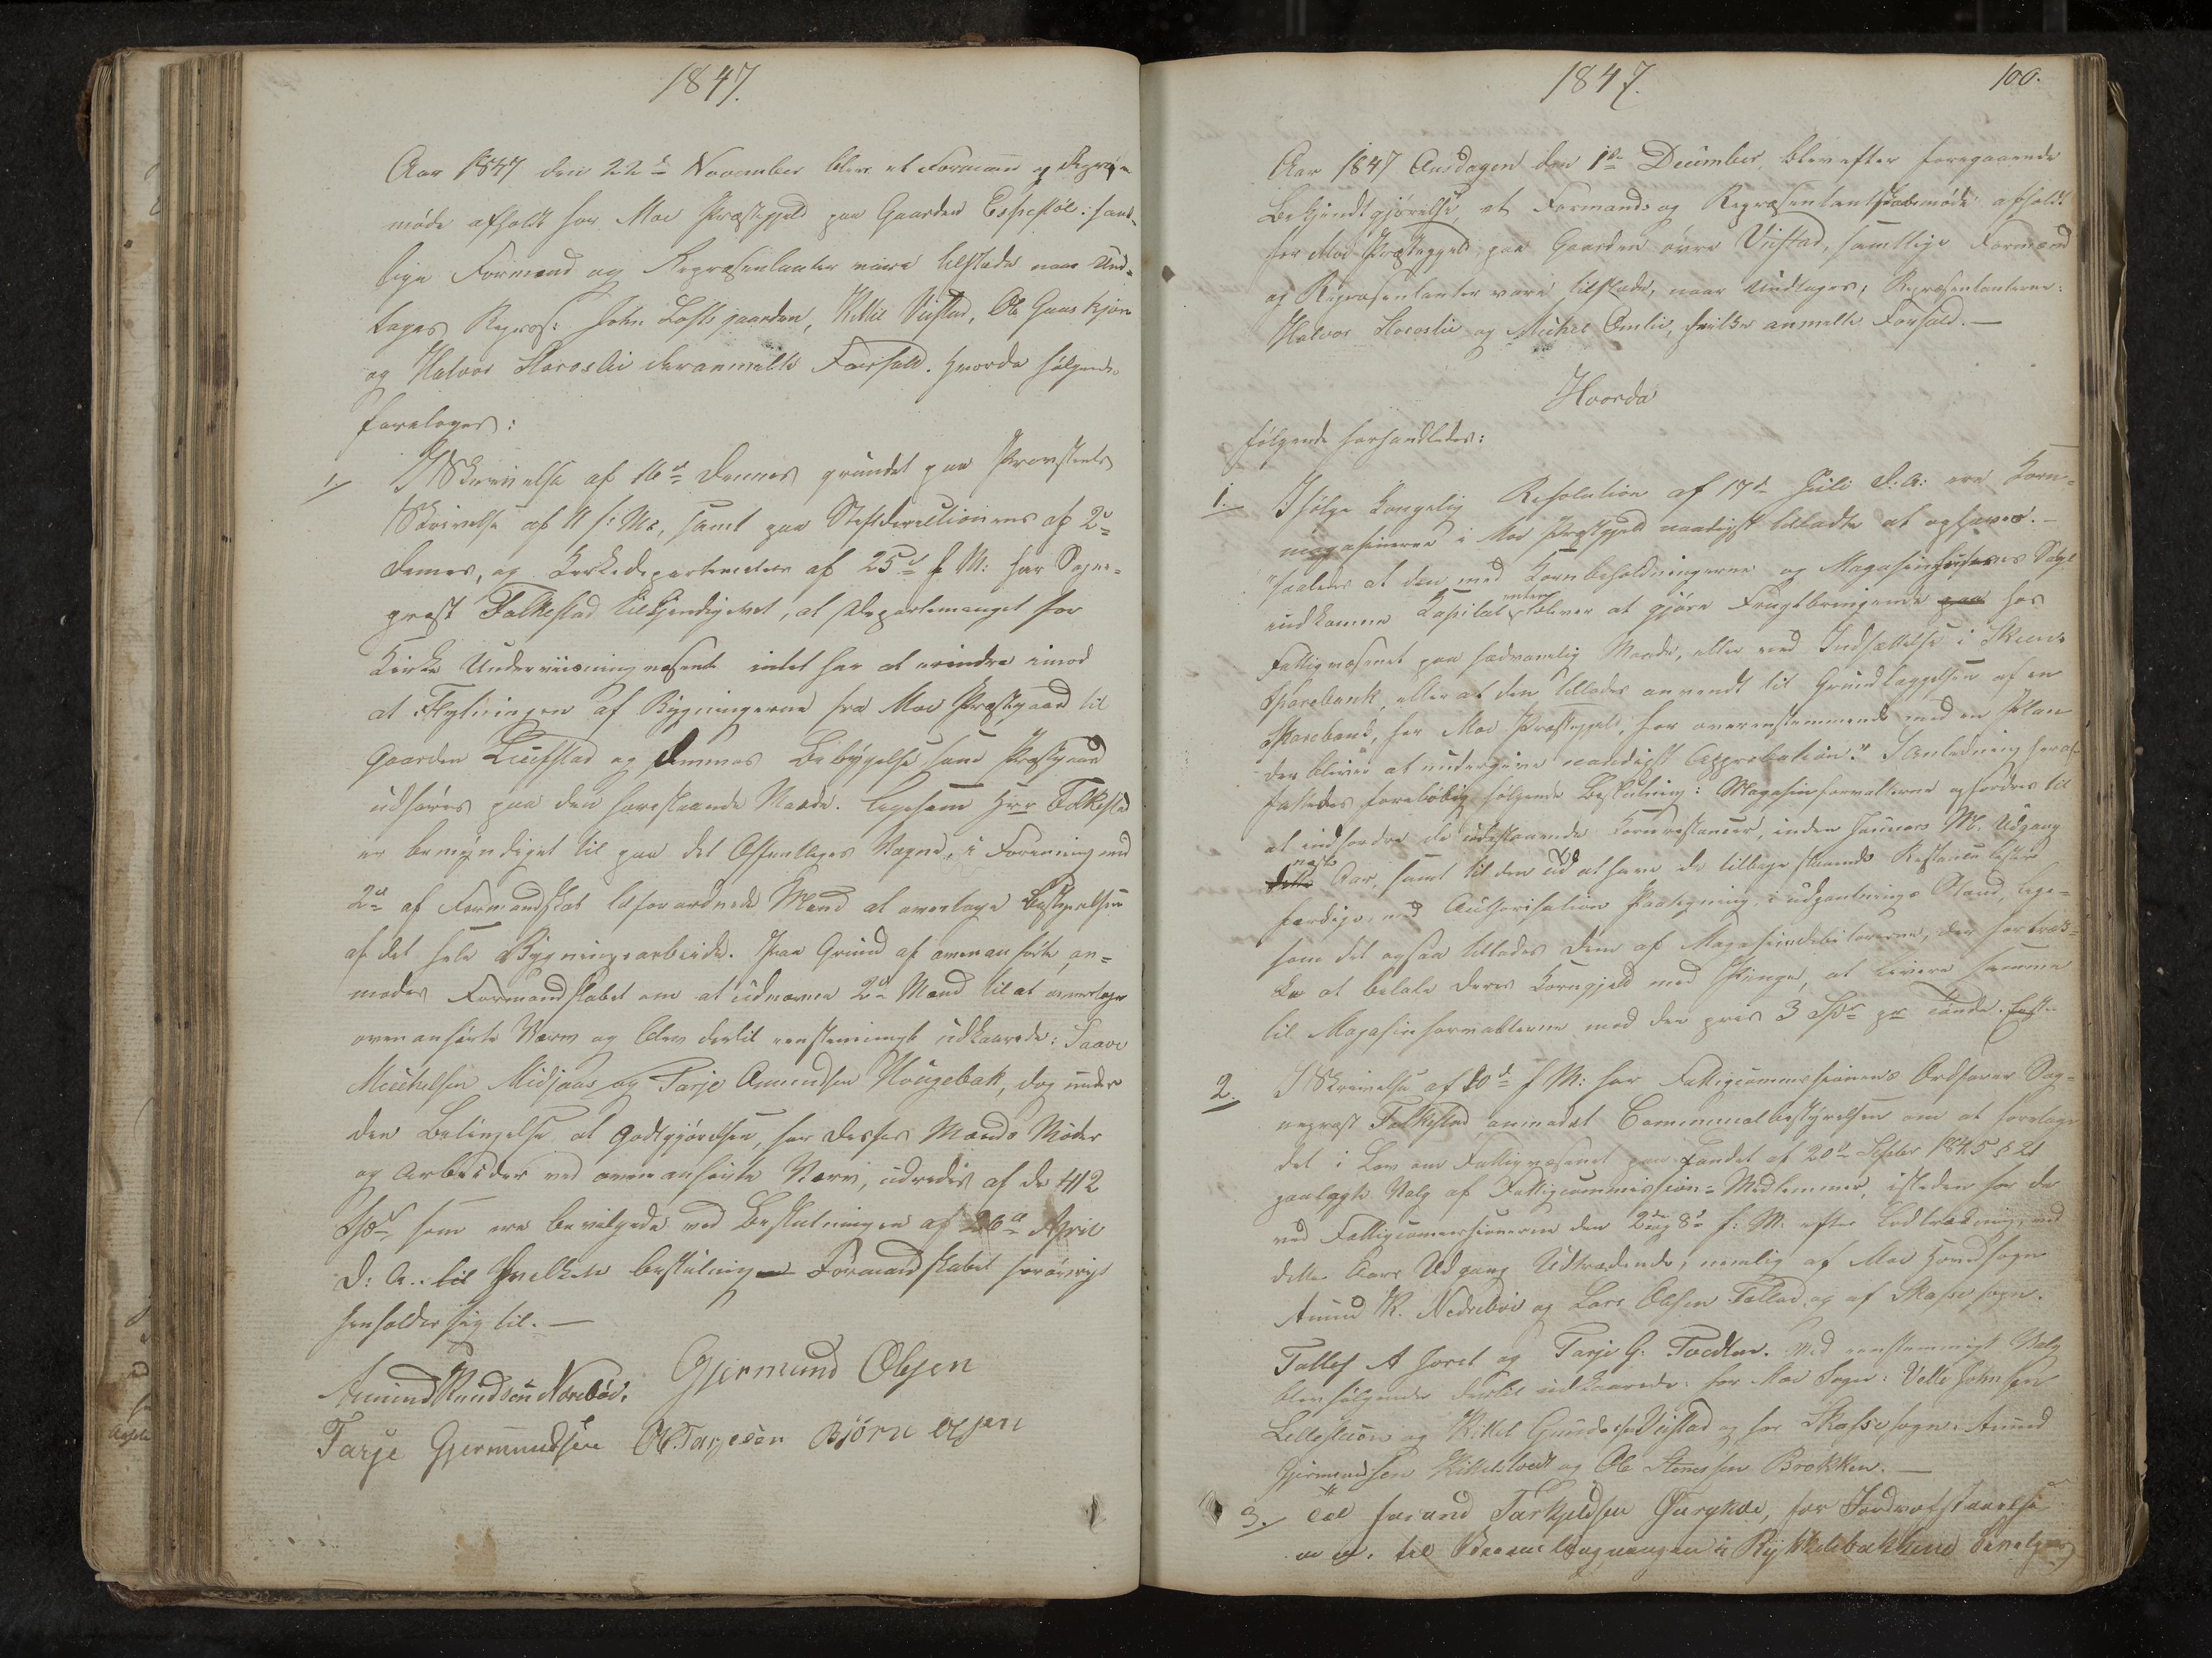 1847.
Aar 1847 den 22d November blev et Formand og Repræs:
møde afholdt for Moe Præstegjeld paa Gaarden Espestøl: samt-
lige Formænd og Repræsentanter vare tilstede naar und-
tages Repræs: John Loftsgaarden, Kittil Viistad, Ole Gaaskjøn
og Halvor Storoslii der anmeldte Forfald. Hvorda følgende
foretoges:
1/ I Skrivelse af 16d dennes grundet paa Provstens
Skrivelse af 11 f: M:, samt paa Stiftsdirectionens af 2d
dennes, og Kirkedepartementets af 25d f M: har Sogne-
præst Falkestad tilkjendegivet, at Departementet for
Kirke Underviisningvæsenet intet har at erindre imod
at Flytningen af Bygningerne fra Moe Præstegaard til
Gaarden Liufstad og dennes Bebygelse som Præstegaard
udføres paa den forestaaende Maade. ligesom Hrr Falkestad
er bemyndiget til paa det Offentliges Vegne, i Forening med
2d af Formandskab beforordnede Mænd at overtage Bestyrelsen
af det hele Bygningsarbeide. Paa Grund af ovenanførte an-
modes Formandskabet om at udnævne 2d Mænd til at overtage
ovenanførte Værv og blev dertil eenstemmigt udkaarede: Saave
Michelsen Midjaas og Tarje Amundsen Haugebak, dog under
den Betingelse at Godtgjørelsen, for disses Mænds Møder
og Arbeider ved ovenanførte Værv, udredes af de 412
Spd som ere bevilgede ved Beslutningen af 26d April
d: A.. til hvilken beslutning Formandskabet forøvrigt
henholder sig til. —
Amund Knudsen Nærebøe. Gjermund Olsen
Tarje Gjermundsen Ol. Tarjesen Bjørn Olsen
1847. 100.
Aar 1847 Onsdagen den 1de December, blev efter foregaaende
Bekjendtgjørelse, et Formands og Repræsentantskabsmøde afholdt
for Moe Præstegjeld paa Gaarden øvre Viistad, samtlige Formænd
og Repræsentanter vare tilstede, naar undtages, Repræsentanterne:
Halvor Storoslii og Michel Omlii, hvilke anmeldte Forfald. —
Hvorda
følgende forhandledes:
1. Ifølge Kongelig Resolution af 17de Juli d: A: ere Korn-
magasinerne i Moe Præstegjeld naadigst tilladte at ophæves. —
"saaledes at den med Kornbeholdningerne og Magasinhusenes Salg
indkomne Kapital enten bliver at gjøre Frugtbringende paa hos
Fattigvæsenet paa sædvanelig Maade, eller ved Indsættelse i Skiens
Sparebank, eller at den tillades anvendt til Grundlæggelsen af en
Sparebank, for Moe Præstegjeld, for overensstemmende med en Plan
der bliver at undergive naadigst Approbation." I Anledning heraf
fattedes foreløbig følgende Beslutning: Magasinforvalterne opfordres til
at indfordre de udestaaende Kornrestancer, inden Januars M. Udgang
dette næste Aar, samt til den Tid at have de tilbage staaende Restancelister
færdige, med Authorisation Paategning i udpantnings Stand, lige-
som det ogsaa tillades dem af Magasindebitorerne, der foretræk-
ke at betale deres Korngjeld med Penge, at levere samme
til Magasinforvalterne mod den pris 3 Spd pr Tønde.
2. I Skrivelse af 10d f M: har Fattigcommissionens Ordfører Sog-
nepræst Falkestad anmodet Communalbestyrelsen om at foretage
det i Lov om Fattigvæsenet paa Landet af 20d Septbr 1845 § 21
paalagte Valg af Fattigcommission-Medlemmer, isteden for de
ved Fattigcommissionerne den 2den og 8d f: M: efter Lodtrækning, med
dette Aars Udgang Udtrædende; nemlig af Moe Hovedsogn
Amund K. Nedrebøe og Lars Olsen Fallad, og af Skafse sogn.
Tallef A Joret og Tarje G: Tvedten. Med eenstemmigt Valg
blev følgende dertil udkaarede: for Moe Sogn: Vetle Johnsen
Lillestuen og Kittil Gundersen Viistad og for Skafse sogn: Amund
Gjermundsen Kittilstvedt og Ole Stenersen Brokken. —
3./ Til Torkjeldsen for Jordrofstaaelse
m m. til i Rykkelibakkene